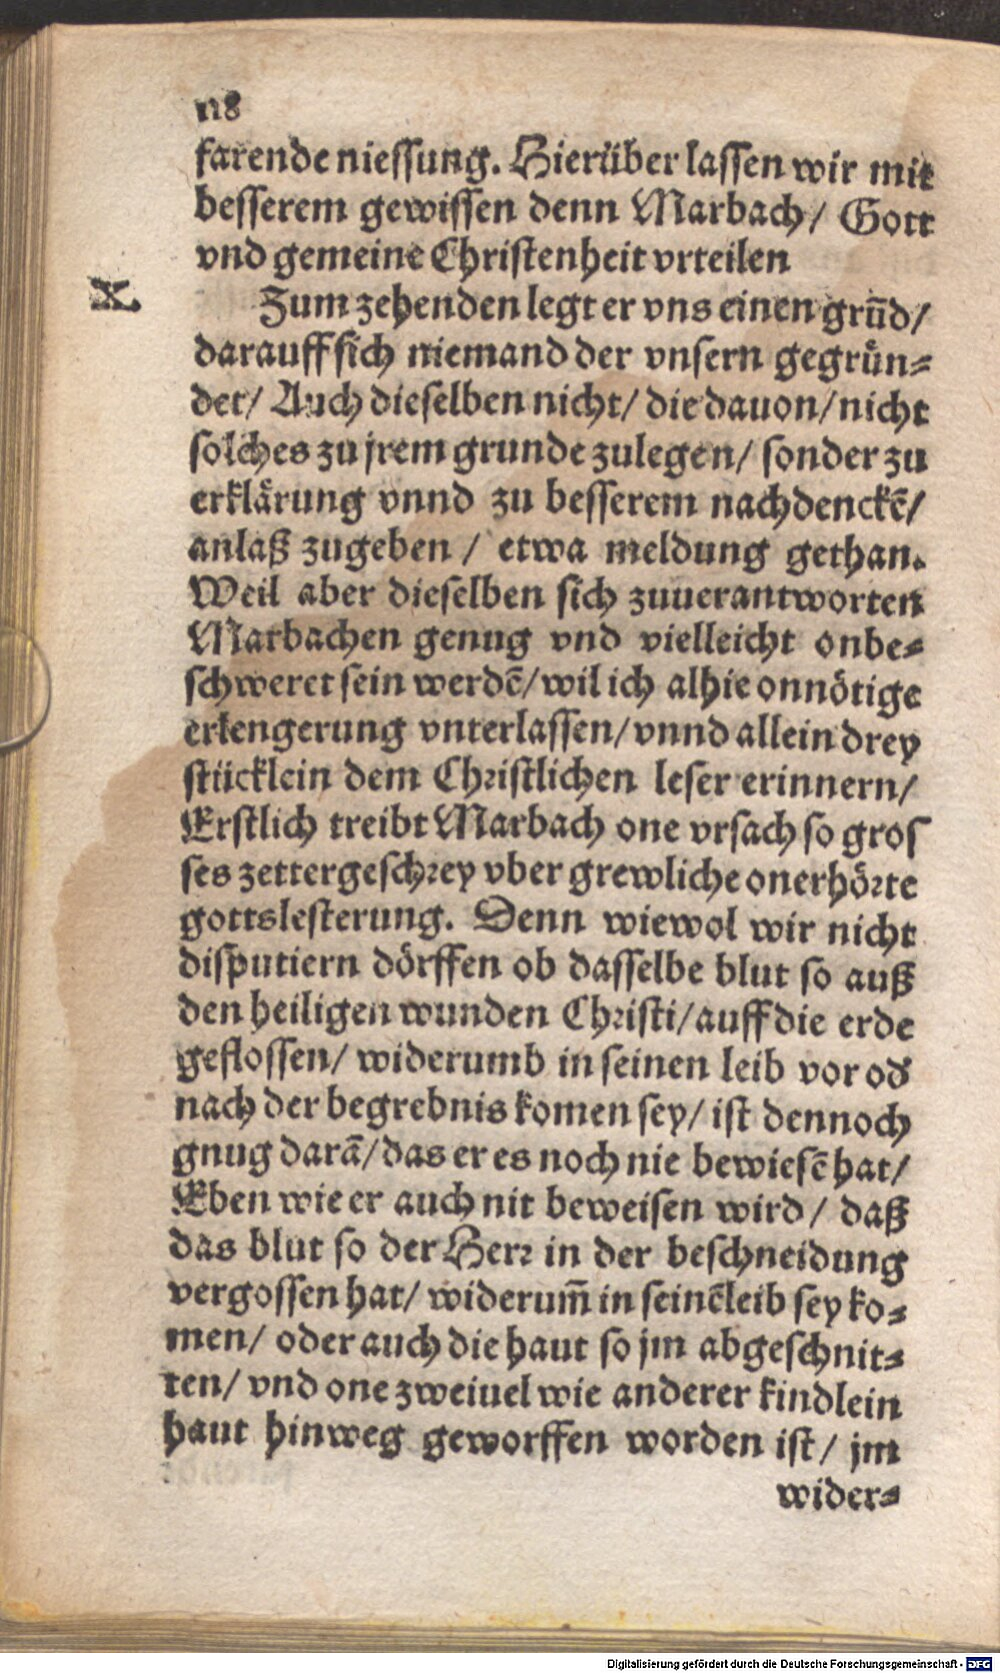 118
farende niessung. Hierüber lassen wir mit
besserem gewissen denn Marbach/ Gott
vnd gemeine Christenheit vrteilen
X.
Zum zehenden legt er vns einen grūd/
darauff sich niemand der vnsern gegrün-
det/ Auch dieselben nicht/ die dauon/ nicht
solches zu jrem grunde zulegen/ sonder zu
erklärung vnnd zu besserem nachdenckē/
anlaß zugeben / etwa meldung gethan.
Weil aber dieselben sich zuuerantworten
Marbachen genug vnd vielleicht onbe-
schweret sein werdē/ wil ich alhie onnötige
erlengerung vnterlassen/ vnnd allein drey
stücklein dem Christlichen leser erinnern/
Erstlich treibt Marbach one vrsach so gros
ses zettergeschrey vber grewliche onerhörte
gottslesterung. Denn wiewol wir nicht
disputiern dörffen ob dasselbe blut so auß
den heiligen wunden Christi/ auff die erde
geflossen/ widerumb in seinen leib vor od
nach der begrebnis komen sey/ ist dennoch
gnug darā/ das er es noch nie bewiesē hat/
Eben wie er auch nit beweisen wird/ daß
das blut so der Herr in der beschneidung
vergossen hat/ widerum̄ in seinē leib sey ko-
men/ oder auch die haut so jm abgeschnit-
ten/ vnd one zweiuel wie anderer kindlein
haut hinweg geworffen worden ist/ jm
wider-
Digitalisierung gefördert durch die Deutsche Forschungsgemeinschaft - DFG